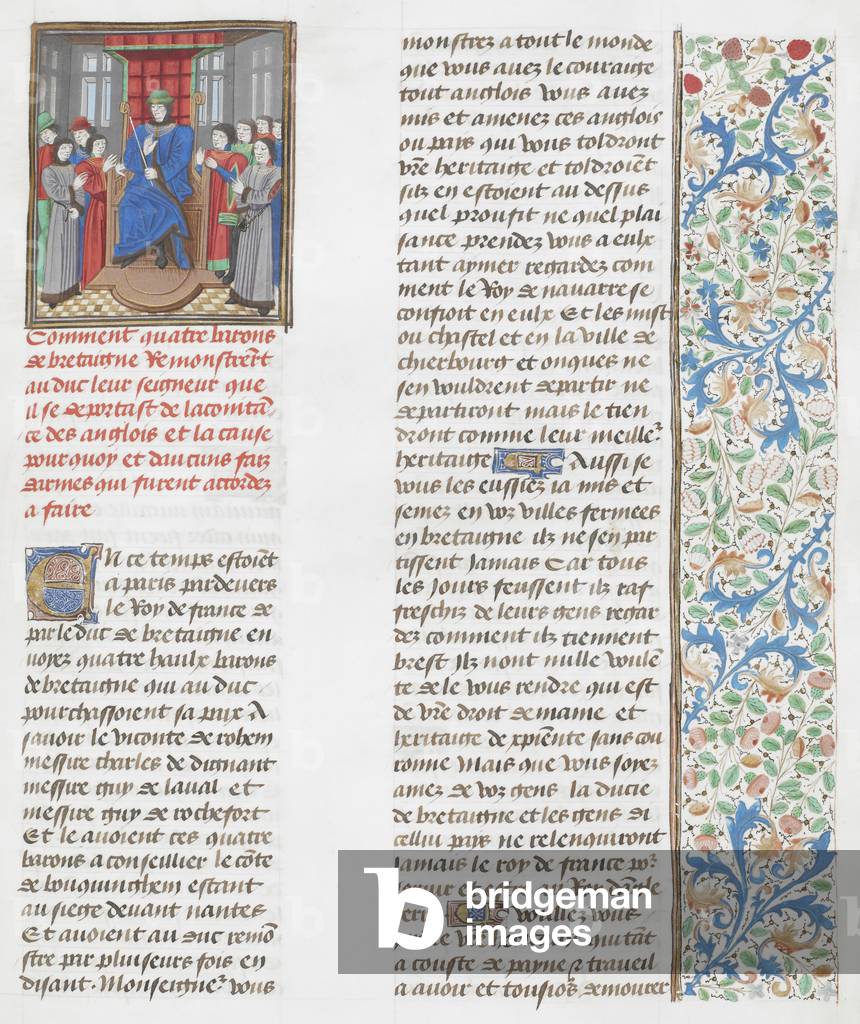 Comment quatre barons
de bretaigne Remonstrẽt
au duc leur seigneur que
il se deportast de lacointã
ce des anglois et la cause
pourquoy et daucuns faiz
darmes qui furent accordez
a faire
En ce temps estoiẽt
a paris pardevers
le Roy de france de
par le duc de bretaigne en
uoyez quatre haulx barons
de bretaigne qui au duc
pourchassoient sa paix A
sauoir le viconte de rohem
messire charles de dignant
messire guy de laual et
messire guy de rochefort
Et le auoient ces quatre
barons a conseillier le cõte
de bouquinghem estant
au siege deuant nantes
Et auoient au duc remõ
stre par pluiseurs fois en
disant. Monseigneᷣ vous
monstrez a tout le monde
que vous auez le couraige
tout anglois vous auez
mis et amenez ces anglois
ou pays qui vous toldront
vr̃e heritaige et toldroiẽt
silz en estoient au dessus
quel proufit ne quel plai
sance prendez vous a eulx
tant aymer regardez com
ment le Roy de nauarre se
confioit en eulx Et les mist
ou chastel et en la ville de
chierbourg et onques ne
sen vouldrent departir ne
departiront mais le tien
dront comme leur meilleᷣ
heritaige Aussi se
vous les eussiez ia mis et
semez en voz villes fermees
en bretaigne ilz ne sen par
tissent Jamais Car tous
les Jours feussent ilz raf
freschiz de leurs gens regar
dez comment ilz tiennent
brest Ilz nont nulle voulẽ
te de le vous rendre qui est
de vr̃e droit demaine et
heritaige de xpiente sans cou
ronne Mais que vous soyez
amez de voz gens la ducie
de bretaigne et les gens di
celluy pays ne relenquiront
Jamais le roy de france poᷣ
seruir Roy dãgle
terre Vouilliez vous
quitãt
a couste de payne ⁊ traueil
a auoir et tousiors demourer
bridgeman
images